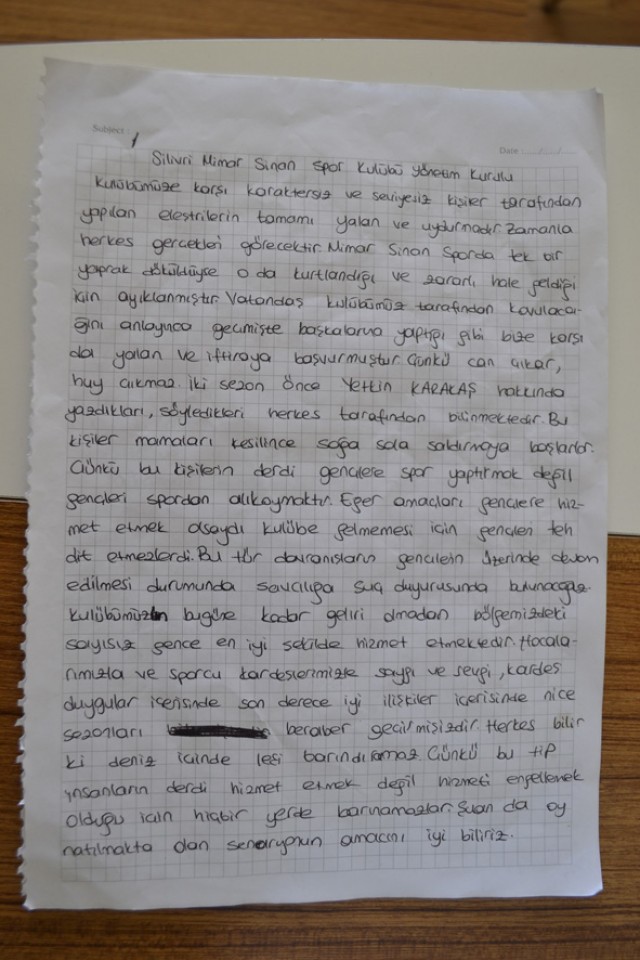 Subject : 1
Date :
Silivri Mimar Sinan Spor Kulübü Yönetim Kurulu
Kulübümüze karşı karaktersiz ve seviyesiz kişiler tarafından
yapılan eleştrilerin tamamı yalan ve uydurmadır. Zamanla
herkes gerçekleri görecektir. Mimar Sinan Sporda tek bir
yaprak döküldüyse o da kurtlandığı ve zararlı hale geldiği
için ayıklanmıştır. Vatandaş kulübümüz tarafından kovulaca-
ğını anlayınca geçmişte başkalarına yaptığı gibi bize karşı
da yalan ve iftiraya başvurmuştur. Çünkü can çıkar,
huy çıkmaz. İki sezon önce Yetkin KARAKAŞ hakkında
yazdıkları, söyledikleri herkes tarafından bilinmektedir. Bu
kişiler mamaları kesilince sağa sola saldırmaya başlarlar.
Çünkü bu kişilerin derdi gençlere spor yaptırmak değil
gençleri spordan alıkoymaktır. Eğer amaçları gençlere hiz-
met etmek olsaydı kulübe gelmemesi için gençleri teh
dit etmezlerdi. Bu tür davranışların gençlerin üzerinde devam
edilmesi durumunda savcılığa suç duyurusunda bulunacağız.
Kulübümüzün bugüne kadar geliri olmadan bölgemizdeki
sayısız gence en iyi şekilde hizmet etmektedir. Hocala-
rımızla ve sporcu kardeşlerimizle saygı ve sevgi, kardeş
duygular içerisinde son derece iyi ilişkiler içerisinde nice
sezonları beraber geçirmişizdir. Herkes bilir
ki deniz içinde leşi barındırmaz. Çünkü bu tip
insanların derdi hizmet etmek değil hizmeti engellemek
olduğu için hiçbir yerde barınamazlar. Şuan da oy
natılmakta olan senaryonun amacını iyi biliriz.